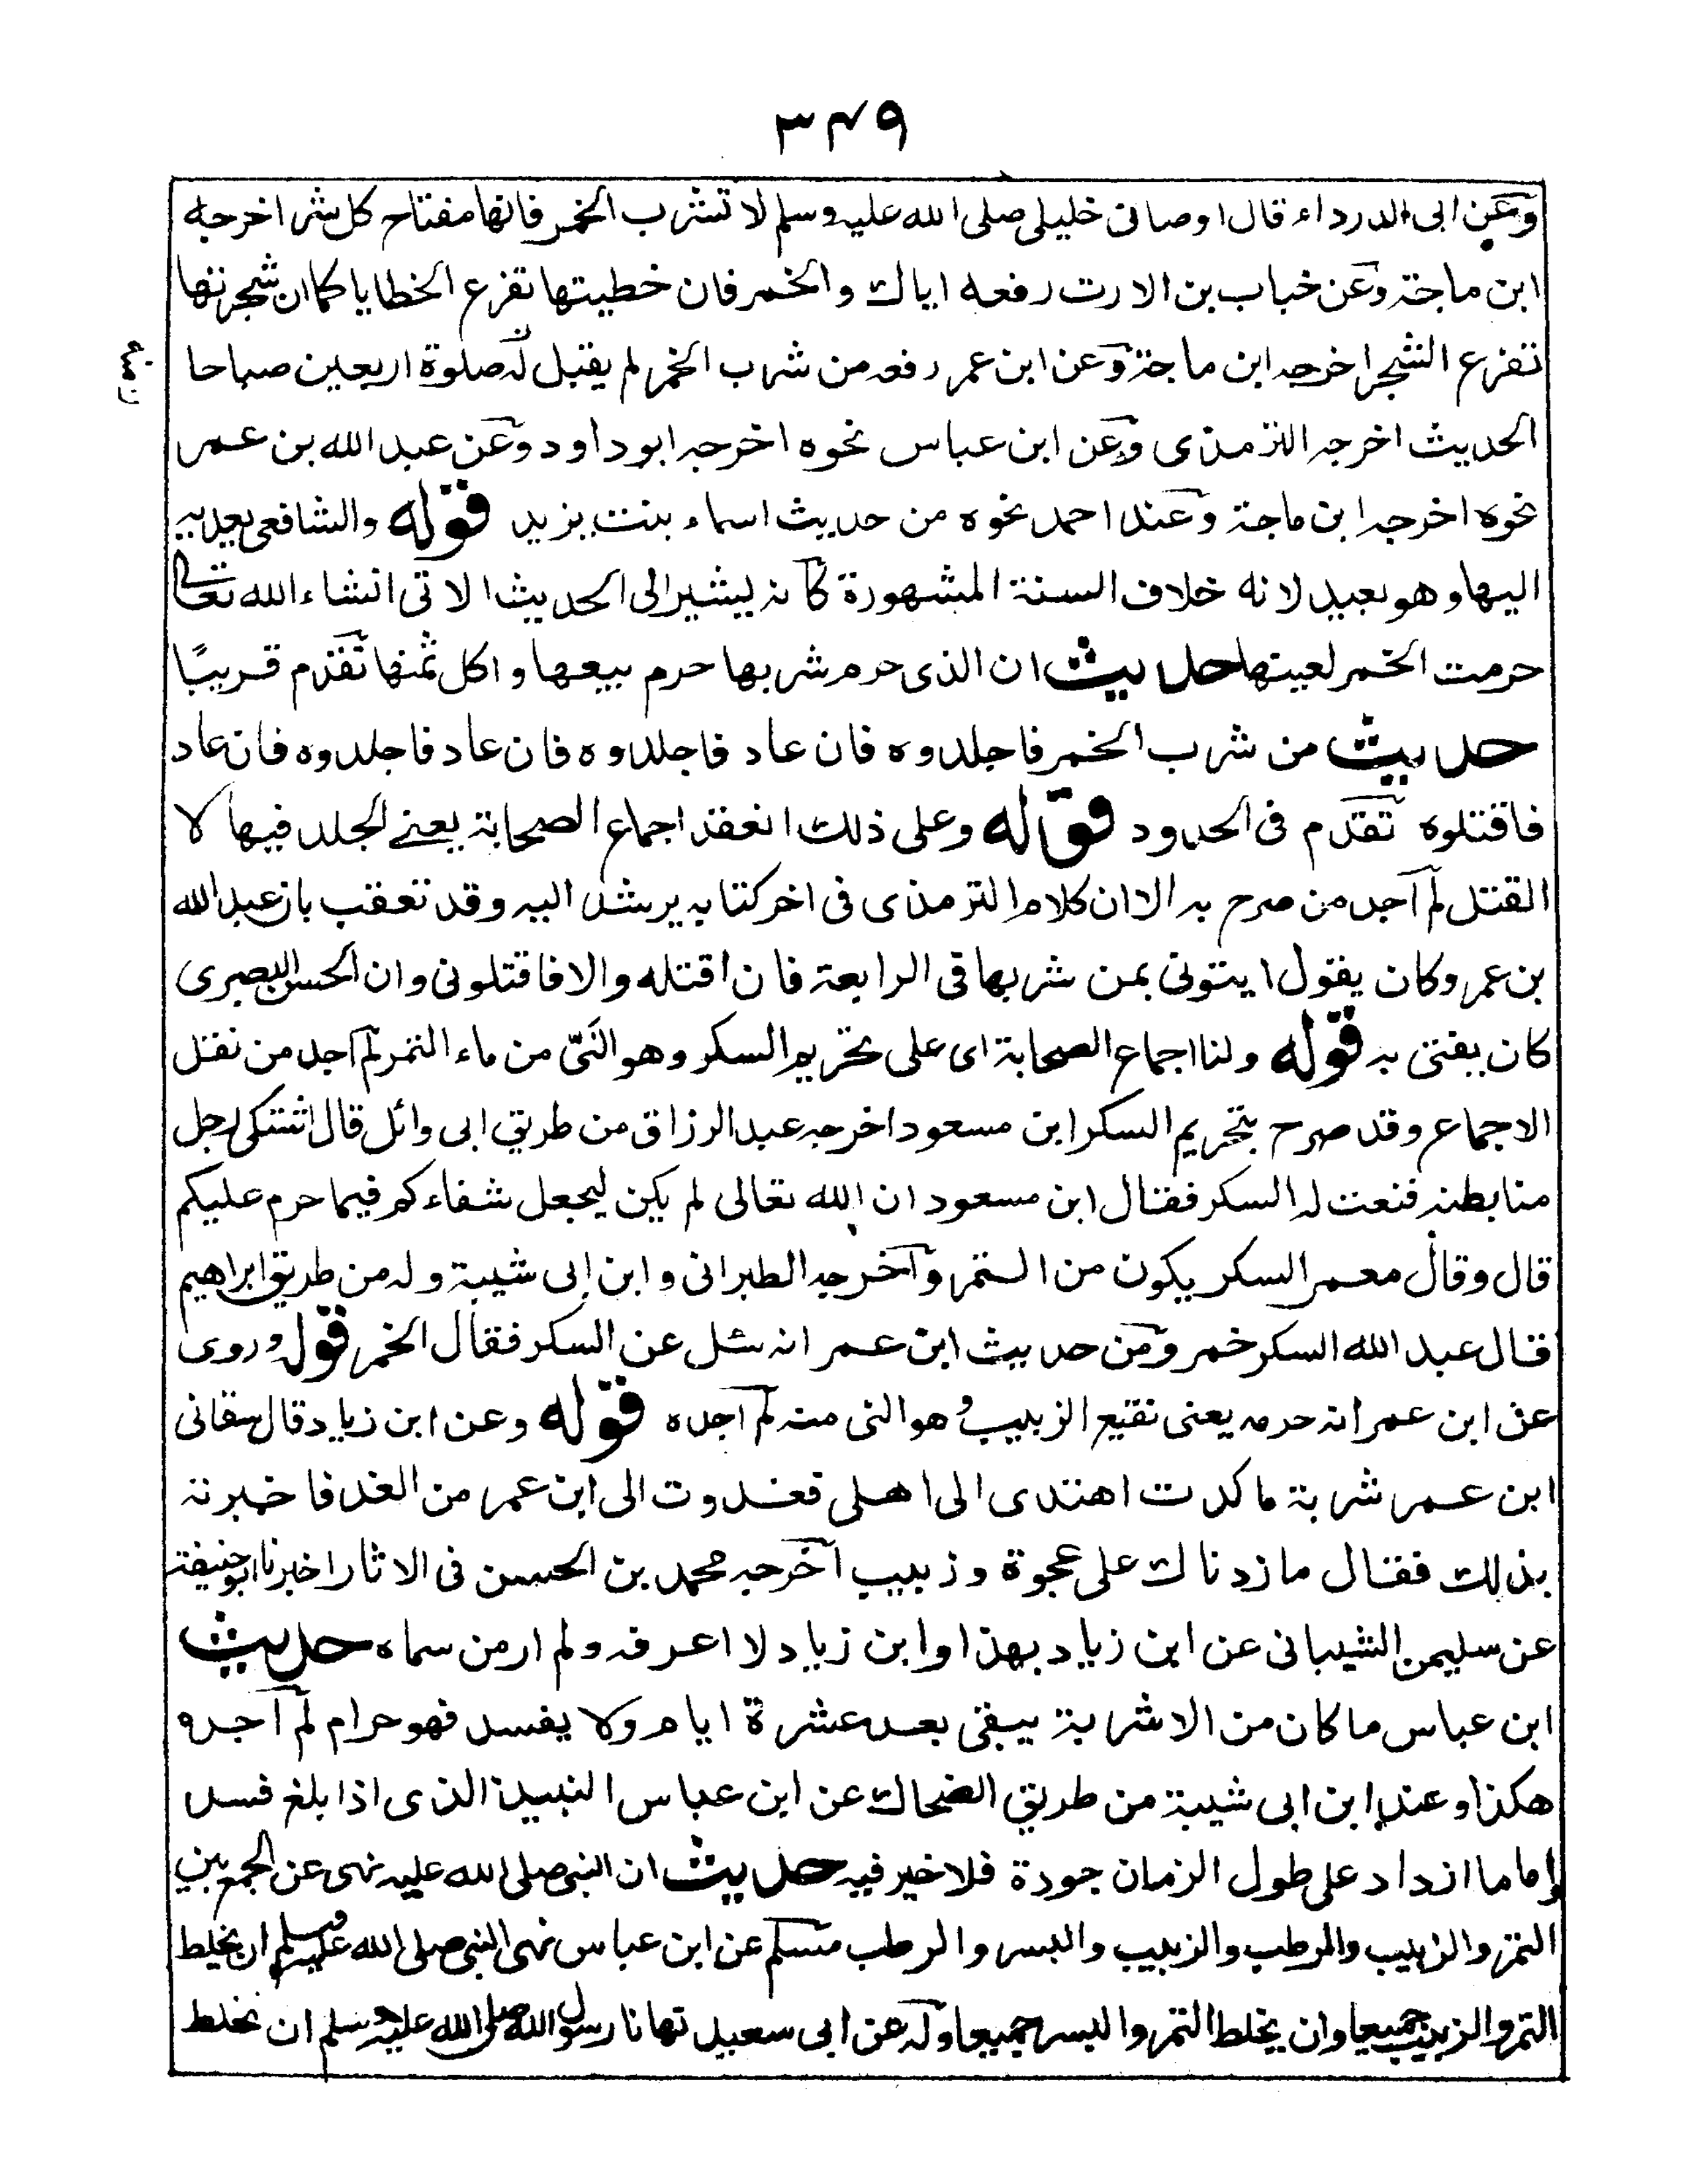 ٣٤٩
وعن ابى الدرداء قال اوصانى خليلى صلى الله عليه وسلم لا تشرب الخمر فانها مفتاح كل شر اخرجه
ابن ماجة وعن خباب بن الارت رفعه اياك والخمر فان خطيتها تفرع الخطايا كما ان شجرتها
تفرع الشجر اخرجه ابن ماجة وعن ابن عمر رفعه من شرب الخمر لم يقبل له صلوة اربعين صباحا
الحديث اخرجه الترمذى وعن ابن عباس نحوه اخرجه ابو داود وعن عبد الله بن عمر
نحوه اخرجه ابن ماجة وعند احمد نحوه من حديث اسماء بنت يزيد قوله والشافعى يعديه
اليها وهو بعيد لانه خلاف السنة المشهورة كأنه يشير الى الحديث الاتى انشاء الله تعالى
حرمت الخمر لعينها حديث ان الذى حرم شربها حرم بيعها و اكل ثمنها تقدم قريبًا
حديث من شرب الخمر فاجلدوه فان عاد فاجلدوه فان عاد فاجلدوه فان عاد
فاقتلوه تقدم فى الحدود قوله وعلى ذلك انعقد اجماع الصحابة يعنے الجلد فيها لا
القتل لم اجد من صرح به الا ان كلام الترمذى فى اخر كتابه يرشد اليه وقد تعقب بان عبد الله
بن عمر وكان يقول ايتونى بمن شربها فى الرابعة فان اقتله والا فاقتلونى وان الحسن البصرى
كان يفتى به قوله ولنا اجماع الصحابة اى على تحريم السكر وهو النّىّ من ماء التمر لم اجد من نقل
الاجماع وقد صرح بتحريم السكر ابن مسعود اخرجه عبد الرزاق من طريق ابى وائل قال اشتكى رجل
منا بطنه فنعت له السكر فقال ابن مسعود ان الله تعالى لم يكن ليجعل شفاءكم فيما حرم عليكم
قال وقال معمر السكر يكون من التمر واخرجه الطبرانى وابن ابى شيبة وله من طريق ابراهيم
قال عبد الله السكر خمر ومن حديث ابن عمر انه سئل عن السكر فقال الخمر قوله وروى
عن ابن عمر انه حرمه يعنى نقيع الزبيب وهو النى منه لم اجده قوله وعن ابن زياد قال سقانى
ابن عمر شربة ماكدت اهتدى الى اهلى فغدوت الى ابن عمر من الغد فاخبرته
بذلك فقال ما زدناك على عجوة وزبيب اخرجه محمد بن الحسن فى الاثار اخبرنا ابو حنيفة
عن سليمن الشيبانى عن ابن زياد بهذا وابن زياد لا اعرفه ولم ار من سماه حديث
ابن عباس ما كان من الاشربة يبقى بعد عشرة ايام ولا يفسد فهو حرام لم اجده
هكذا وعند ابن ابى شيبة من طريق الضحاك عن ابن عباس النبيذ الذى اذا بلغ فسد
واما ما ازداد على طول الزمان جودة فلا خير فيه حديث ان النبى صلى الله عليه نهى عن الجمع بين
التمر والزبيب والرطب والزبيب والبسر والرطب متسلم عن ابن عباس نهى النبى صلى الله عليه وسلم ان يخلط
التمر والزبيب جميعا وان يخلط التمر والبسر جميعا وله عن ابى سعيد نهانا رسول الله صلى الله عليه وسلم ان نخلط